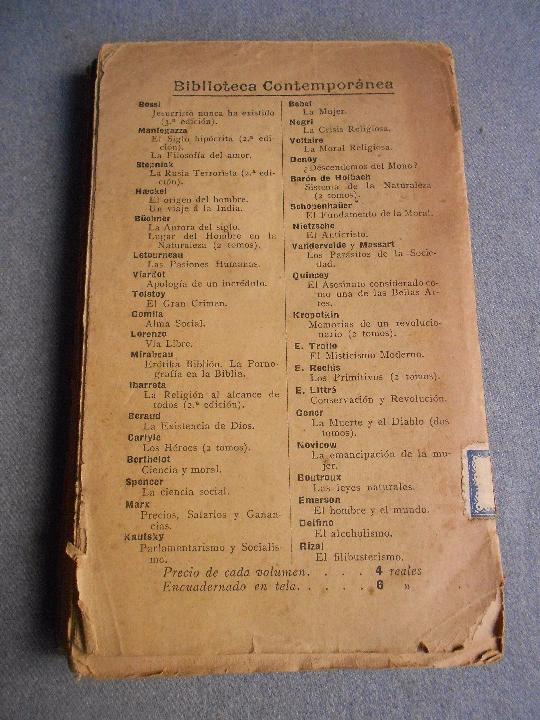 Biblioteca Contemporánea
Bossi
Jesucristo nunca ha existido
(3.ª edición).
Mantegazza
El Siglo hipócrita (2.ª edi-
ción).
La Filosofía del amor.
Stepniak
La Rusia Terrorista (2.ª edi-
ción).
Hæckel
El origen del hombre.
Un viaje á la India.
Büchner
La Aurora del siglo.
Lugar del Hombre en la
Naturaleza (2 tomos).
Letourneau
Las Pasiones Humanas.
Viardot
Apología de un incrédulo.
Tolstoy
El Gran Crimen.
Comila
Alma Social.
Lorenzo
Vía Libre.
Mirabeau
Erótika Biblión. La Porno-
grafía en la Biblia.
Ibarreta
La Religión al alcance de
todos (2.ª edición).
Beraud
La Existencia de Dios.
Carlyle
Los Héroes (2 tomos).
Berthelot
Ciencia y moral.
Spencer
La ciencia social.
Marx
Precios, Salarios y Ganan-
cias.
Kautsky
Parlamentarismo y Socialis-
mo.
Bebel
La Mujer.
Negri
La Crisis Religiosa.
Voltaire
La Moral Religiosa.
Denoy
¿Descendemos del Mono?
Barón de Holbach
Sistema de la Naturaleza
(2 tomos).
Schopenhaüer
El Fundamento de la Moral.
Nietzsche
El Anticristo.
Vandervelde y Massart
Los Parásitos de la Socie-
dad.
Quincey
El Asesinato considerado co-
mo una de las Bellas Ar-
tes.
Kropotkin
Memorias de un revolucio-
nario (2 tomos).
E. Troilo
El Misticismo Moderno.
E. Reclús
Los Primitivos (2 tomos).
E. Littré
Conservación y Revolución.
Gener
La Muerte y el Diablo (dos
tomos).
Novicow
La emancipación de la mu-
jer.
Boutroux
Las leyes naturales.
Emerson
El hombre y el mundo.
Delfino
El alcoholismo.
Rizal
El filibusterismo.
Precio de cada volumen. . . . 4 reales
Encuadernado en tela. . . . . 6 »